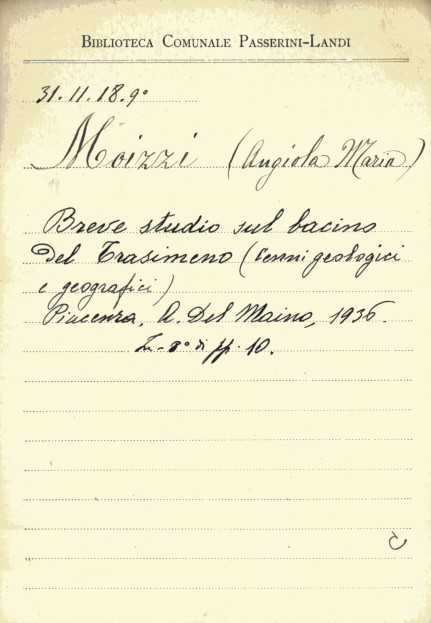 BIBLIOTECA COMUNALE PASSERINI-LANDI
31.11.18.9°
Moizzi (Angiola Maria)
Breve studio sul bacino
del Trasimeno (Cenni geologici
e geografici)
Piacenza, A. Del Maino, 1936.
In-8° di pp. 10.